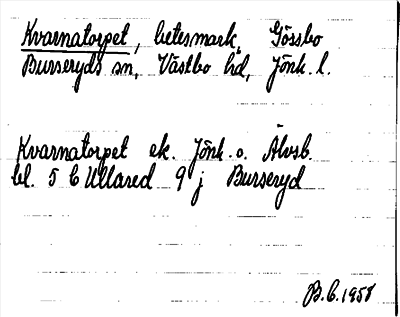 Kvarnatorpet, betesmark, Gössbo
Burseryds sn, Västbo hd, Jönk. l.
Kvarnatorpet ek. Jönk. o. Älvsb.
bl. 5 C Ullared 9 j Burseryd
B.C. 1958